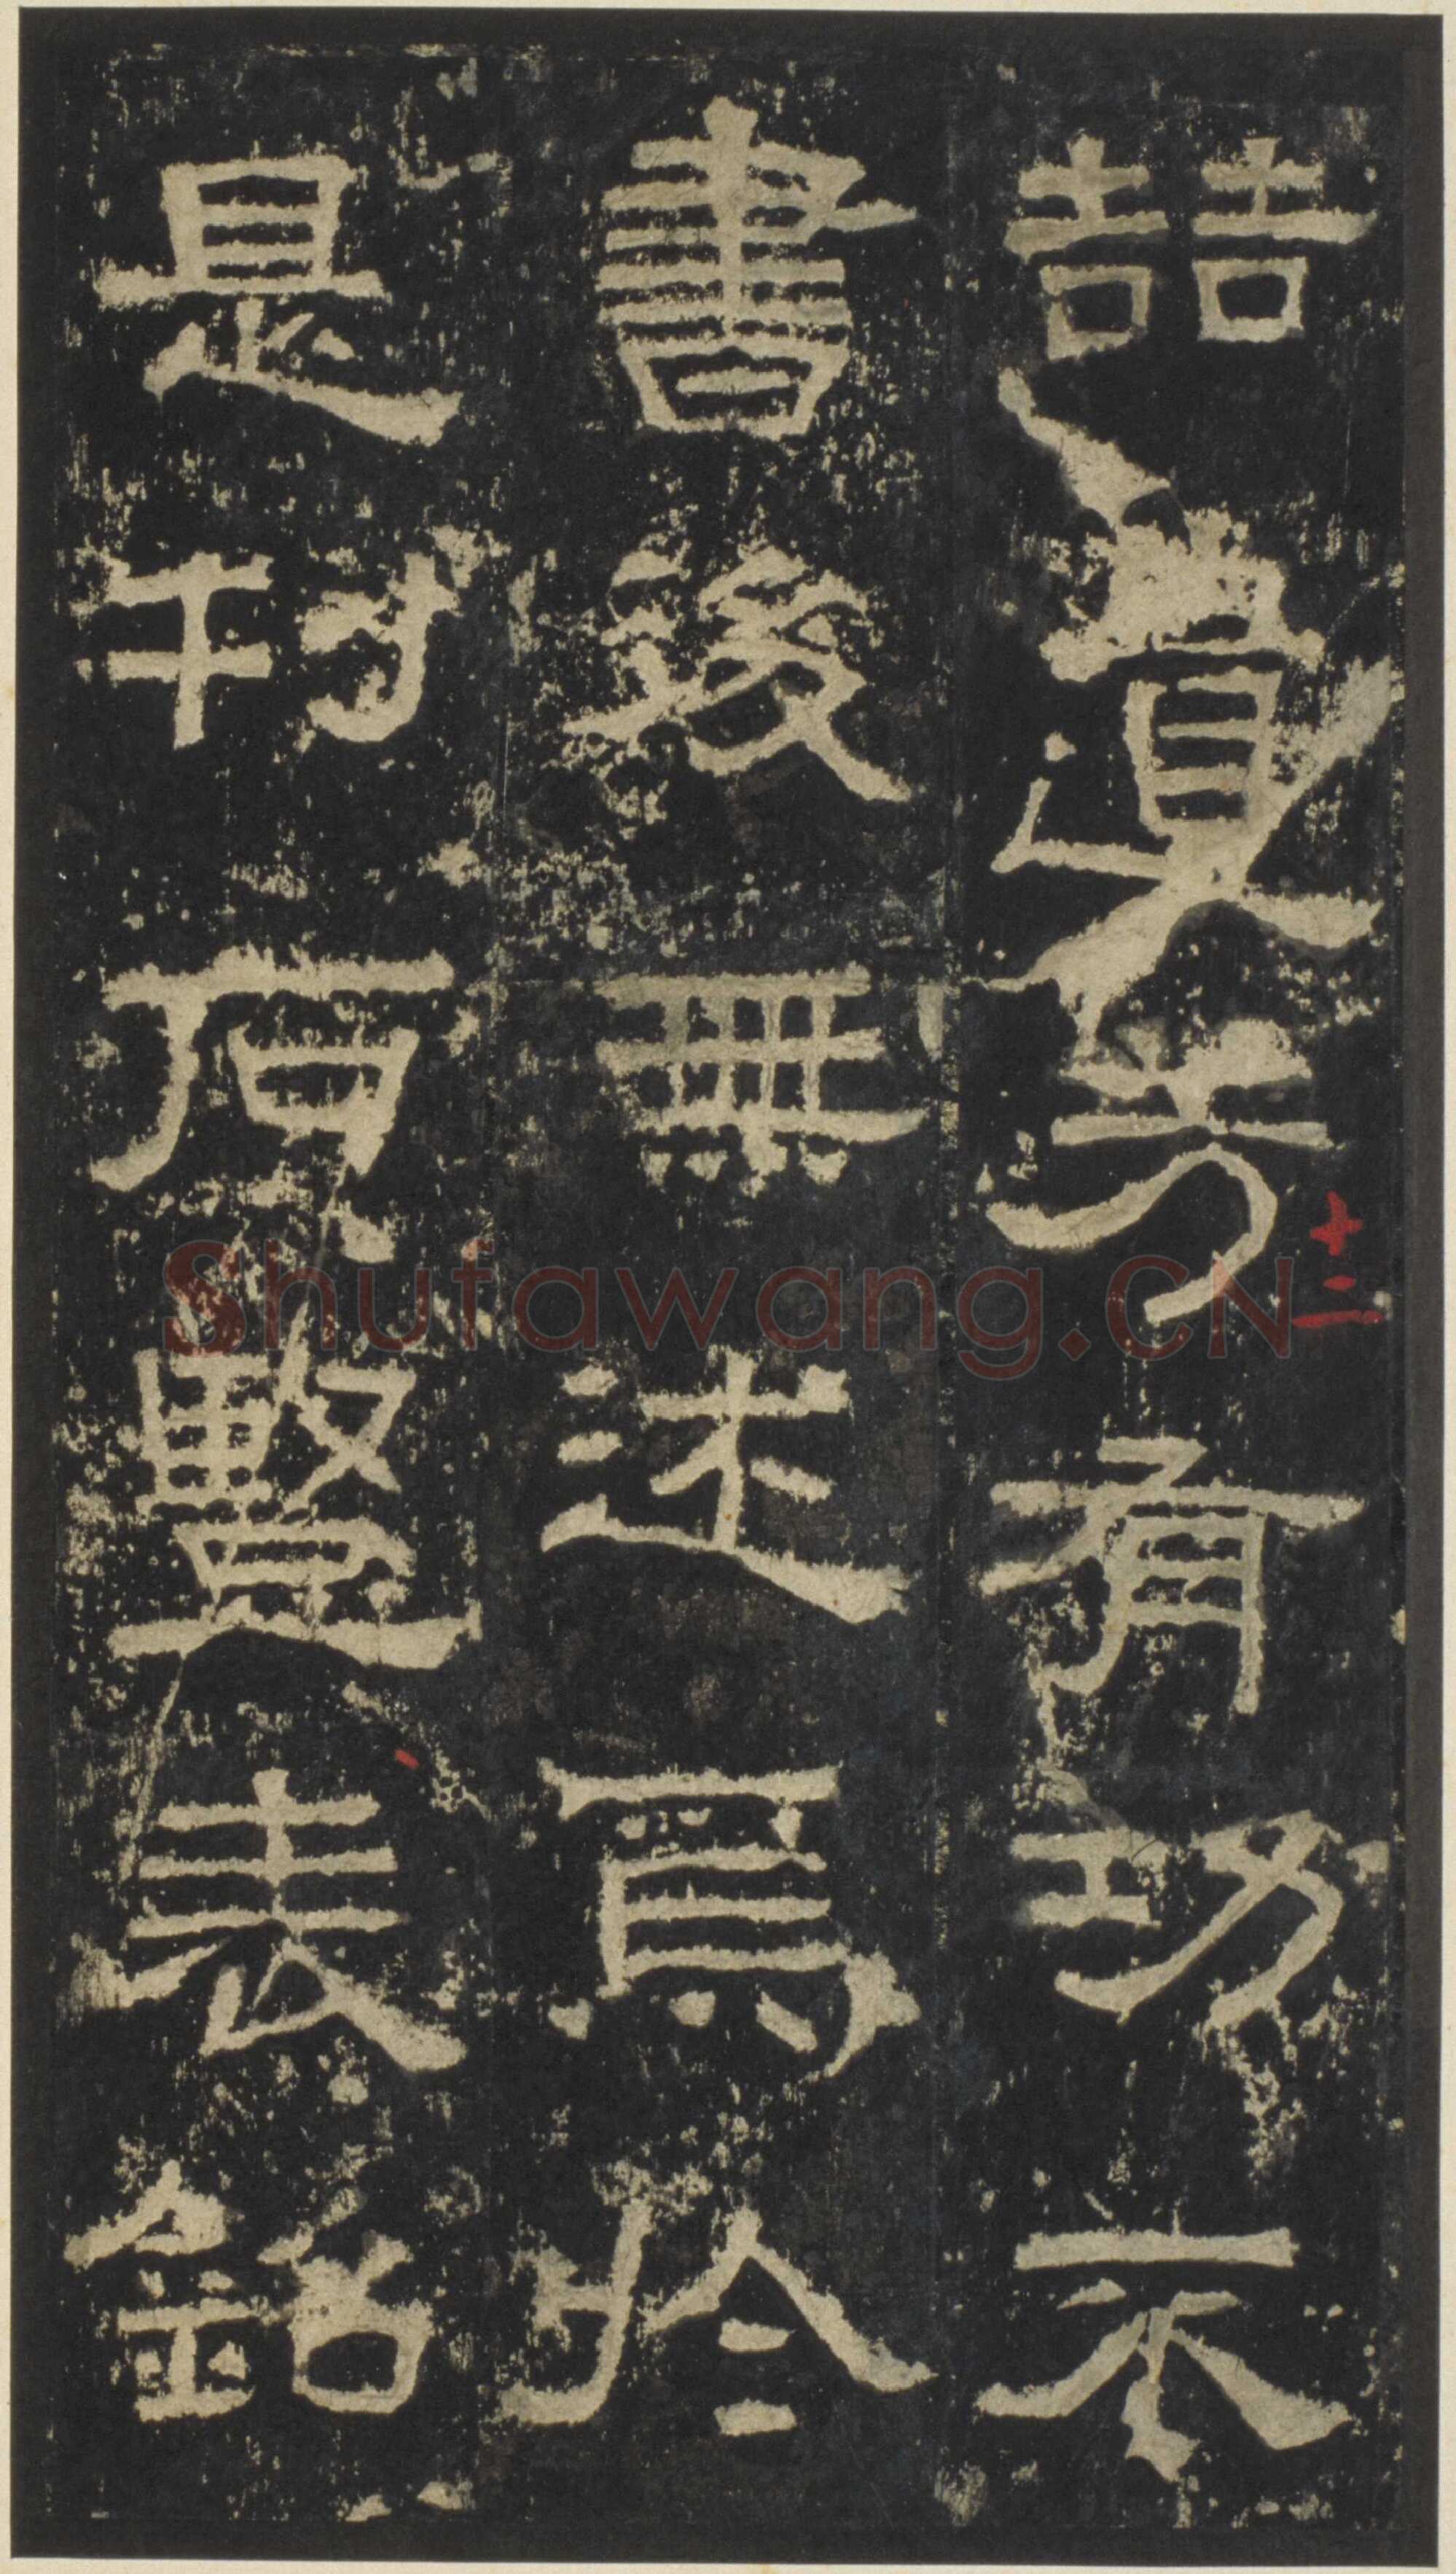 喆遺芳有功不
書後無述焉於
是刊石豎表銘
十二
Shufawang.CN